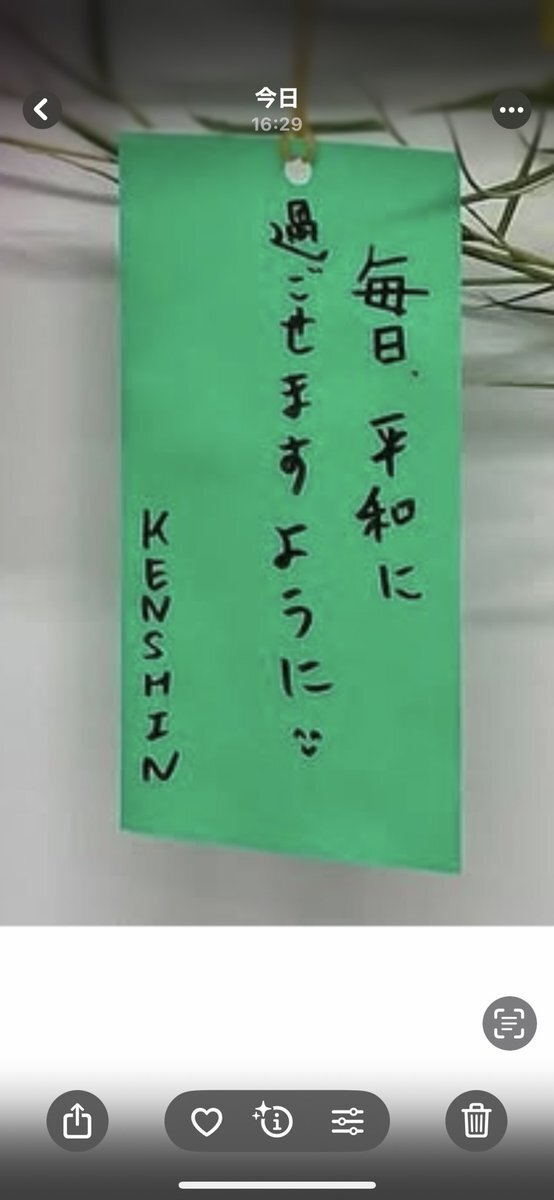 今日
16:29
毎日、平和に
過ごせますように
KENSHIN